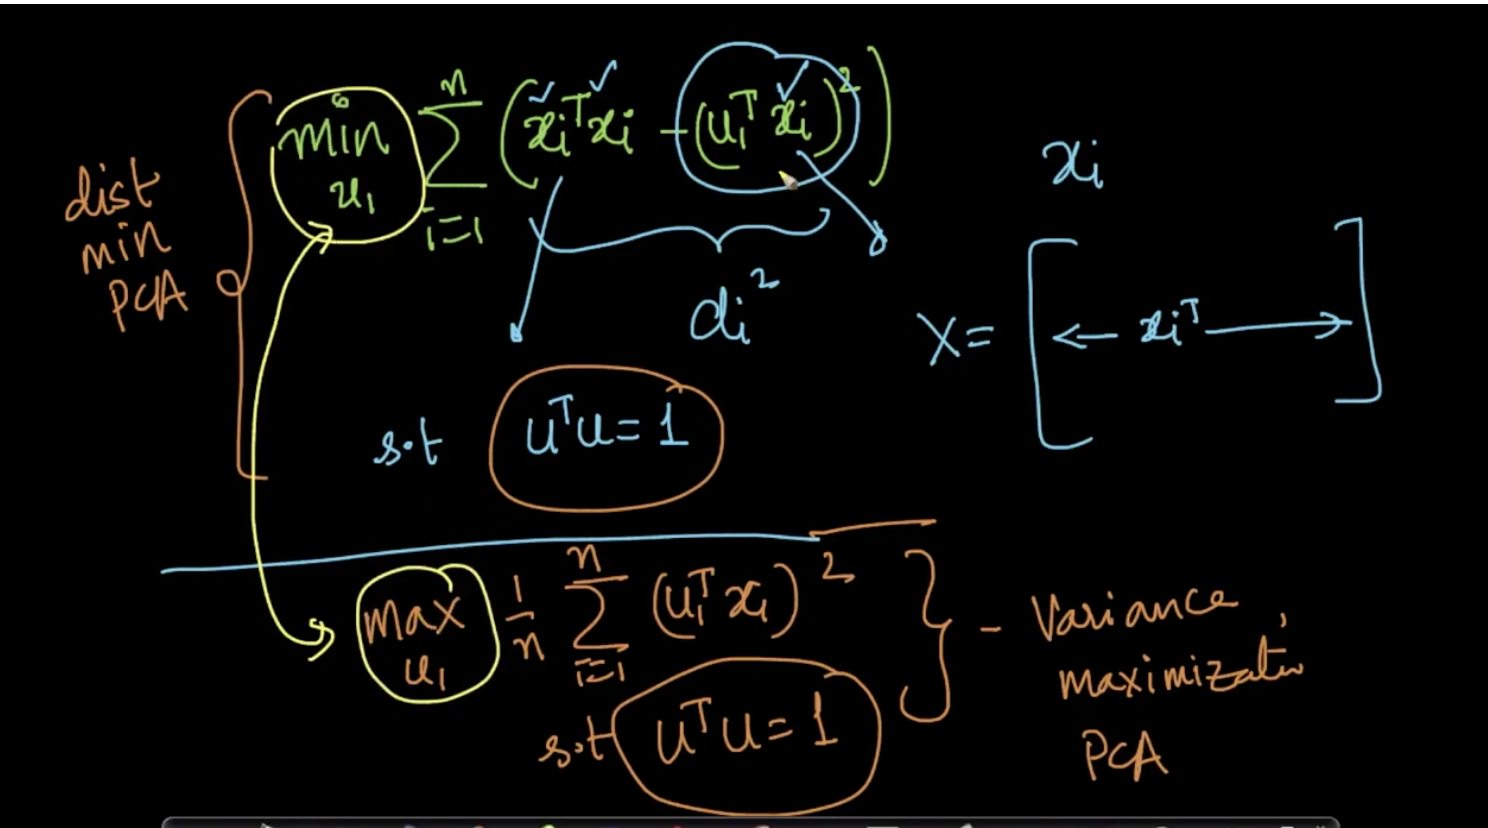 dist min PCA
min u₁ Σ i=1 n (xᵢᵀxᵢ − (u₁ᵀ xᵢ)²)
dᵢ²
s.t uᵀu = 1
xᵢ
X = [← xᵢᵀ →]
max u₁ 1/n Σ i=1 n (u₁ᵀ xᵢ)²
s.t uᵀu = 1
- Variance
maximizatio
PCA